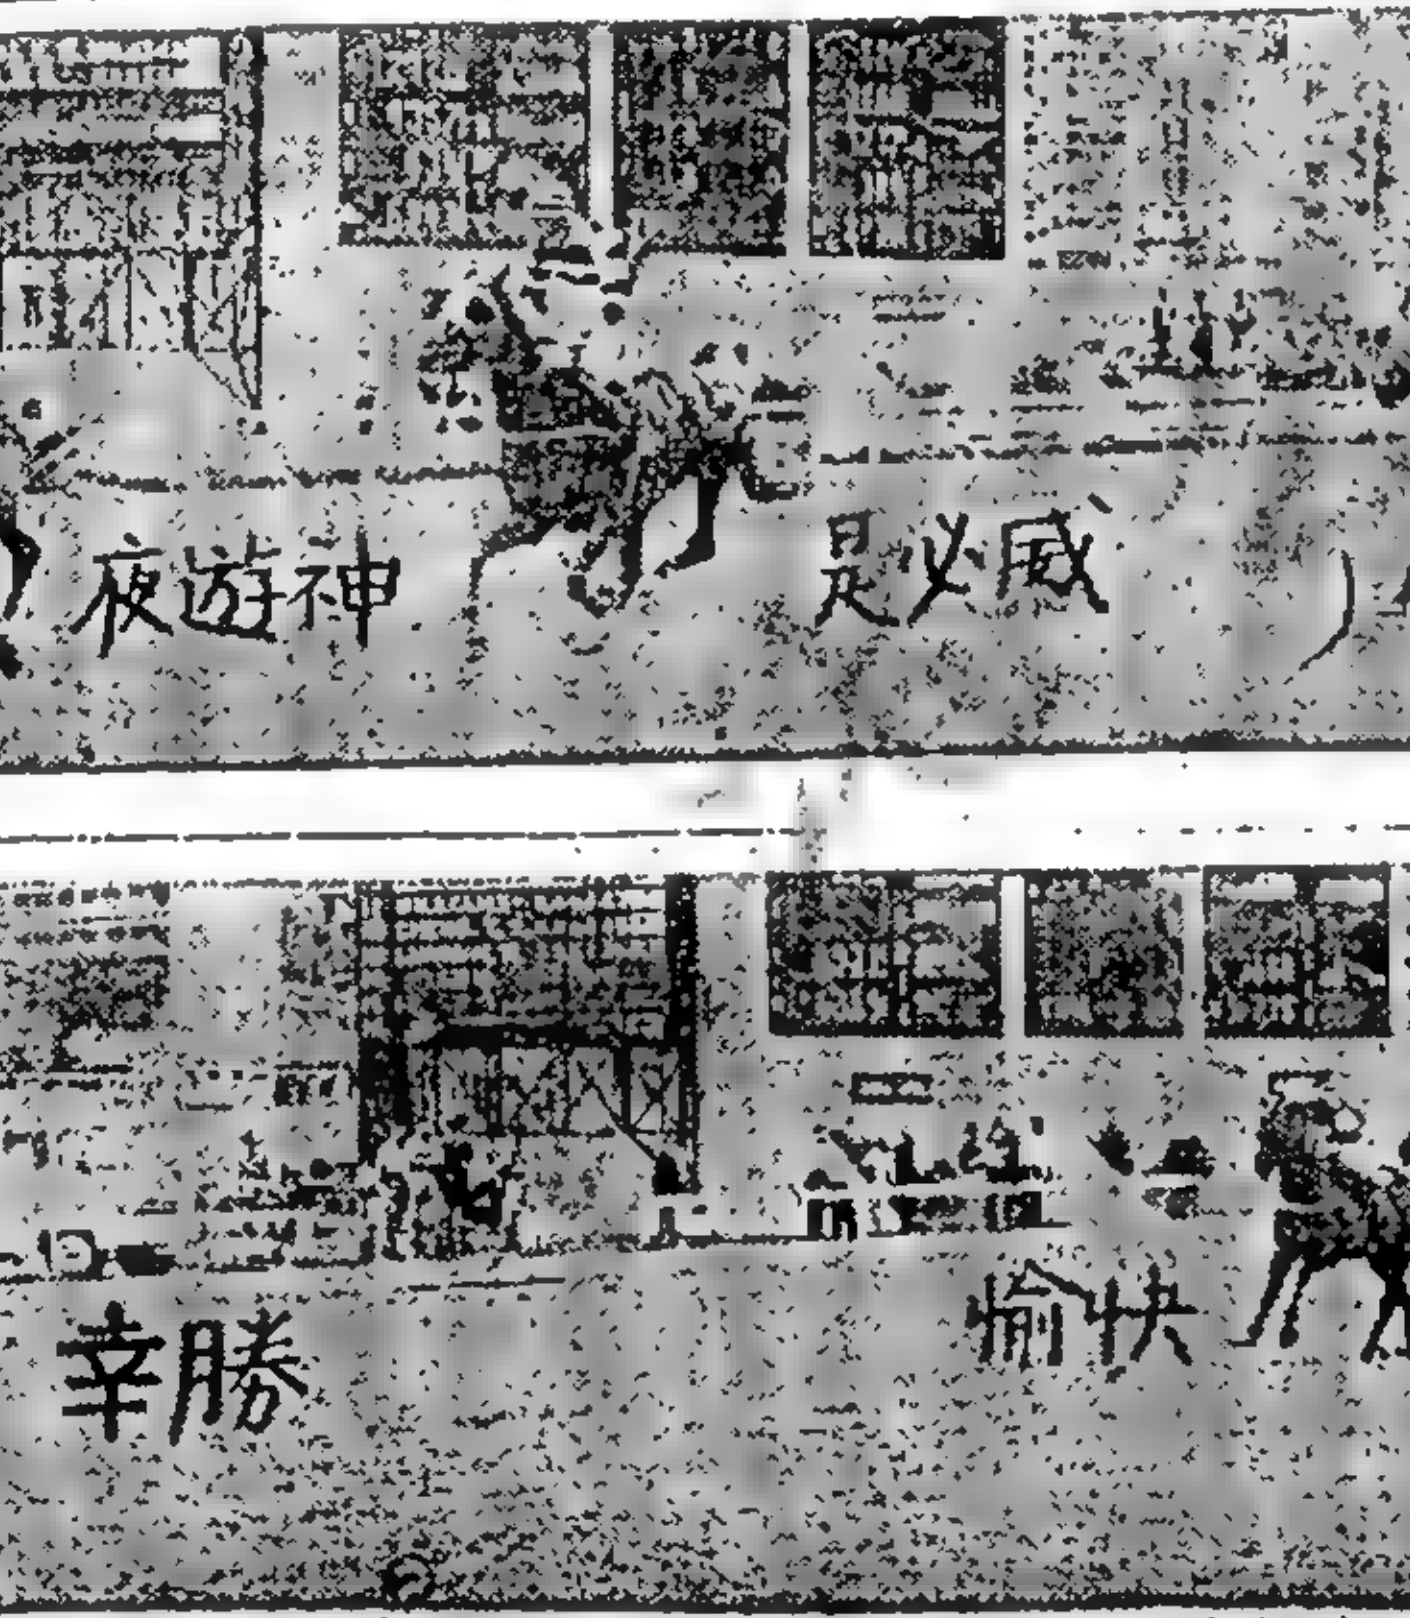 夜遊神
是必威
幸勝
愉快